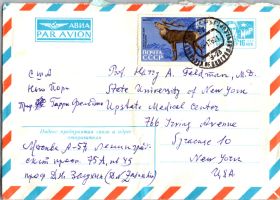 АВИА
PAR AVION
ПОЧТА
СССР
США Prof. Harry A. Feldman, M.D.
Нью Йорк State University of New York
Проф. Гарри Фельдман Upstate Medical Center
766 Irving Avenue
Индекс предприятия связи и адрес отправителя
Syracuse 10
Москва А-57, Ленинград-
ский 75А, кв 45 New York
проф. USA